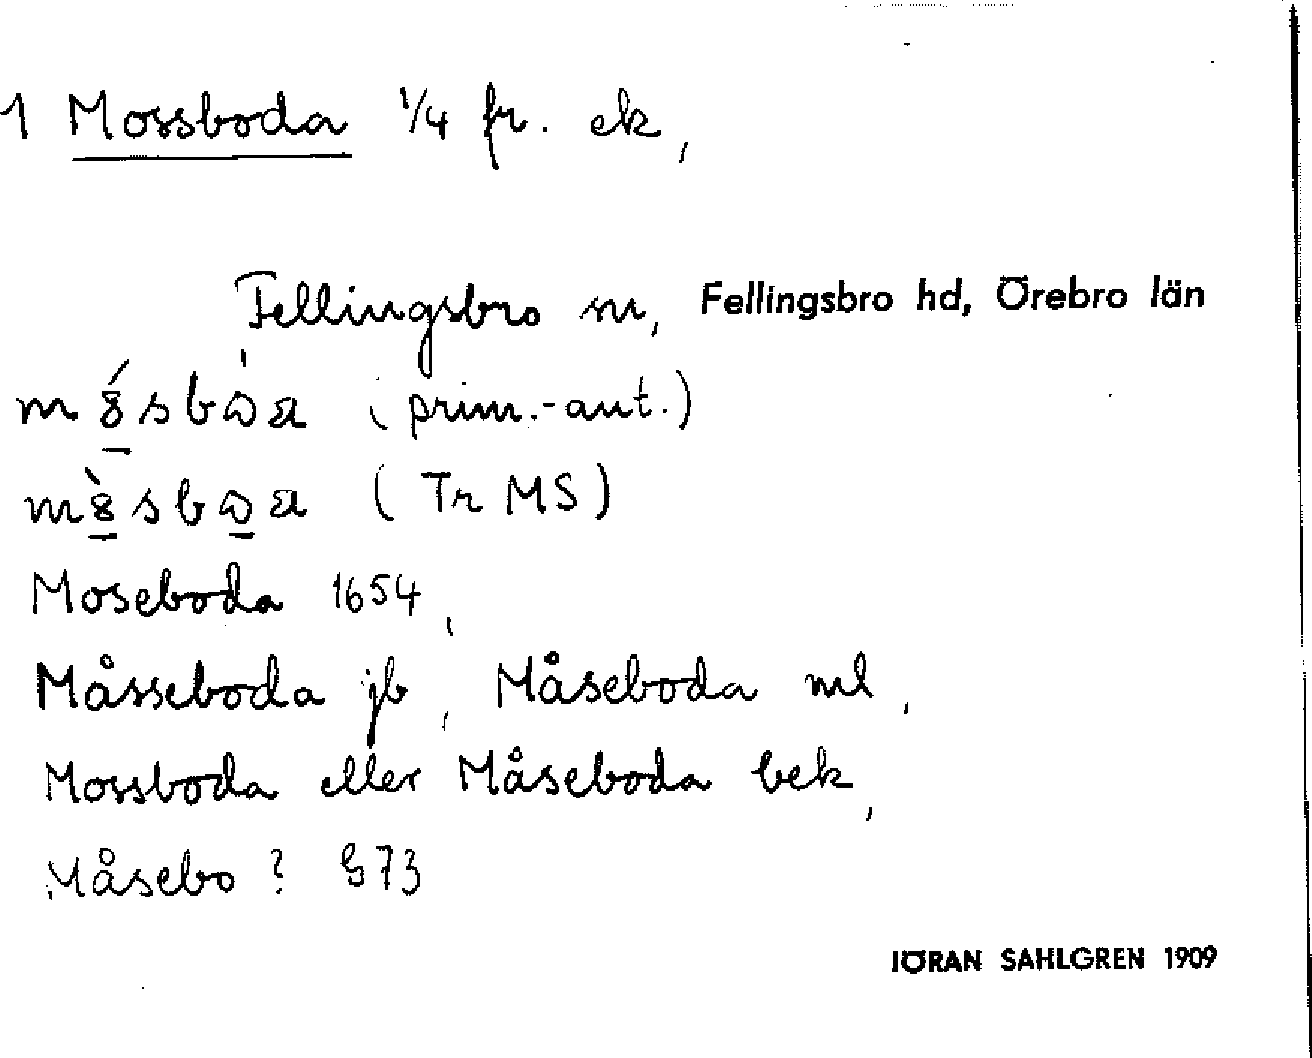 1 Mossboda 1/4 fr. ek,
Fellingsbro sn, Fellingsbro hd, Örebro län
(prim.-aut.)
(Tr MS)
Moseboda 1654,
Måsseboda jb, Måseboda ml,
Mossboda eller Måseboda bek,
Måsebo? G73
JÖRAN SAHLGREN 1909